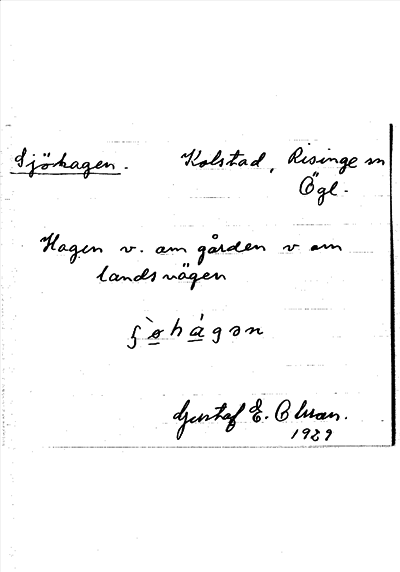 Sjöhagen. Kolstad, Risinge sn
Ögl.
Hagen v. om gården v om
landsvägen
Gustaf E. Olsson.
1929